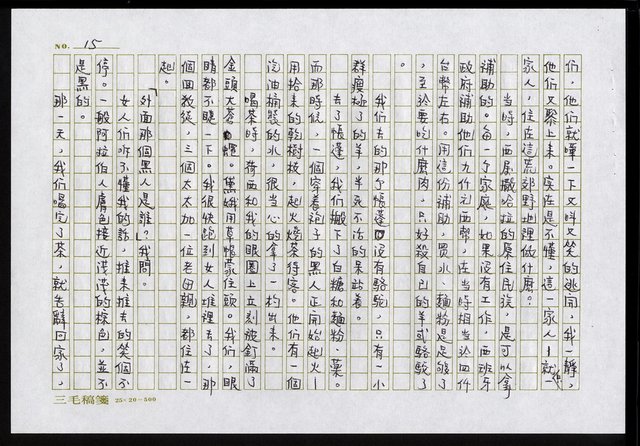 NO. 15
們，他們就嘩一下又叫又笑的逃開，我一靜，
他們又聚上來。實在是不懂，這一家人——就
家人，住在這荒郊野地裡做什麼？
當時，西屬撒哈拉的原住民族，是可以拿
補助的。每一個家庭，如果沒有工作，西班牙
政府補助他們九千西幣，在當時相當於四千
台幣左右。用這份補助，買水、麵粉是足夠了
，至於要吃什麼肉，只好殺自己的羊或駱駝了
。
我們去的那個帳篷沒有駱駝，只有一小
群瘦極了的羊，半死不活的呆站着。
去了帳篷，我們搬下了白糖和麵粉、藥。
而那時候，一個穿着袍子的黑人正開始起火—
用拾來的乾樹枝，起火燒茶待客。他們有一個
汽油桶裝的水，很當心的拿了一杓出來。
喝茶時，荷西和我的眼圈上立刻被釘滿了
金頭大蒼蠅。黛娥用草帽蒙住頭。我們，眼
睛都不睫一下。我很快跑到女人堆裡去了，那
個回教徒，三個太太加一位老母親，都住在一
起。
「外面那個黑人是誰？」我問。
女人們聽不懂我的話，推來推去的笑個不
停。一般阿拉伯人膚色接近淺淺的棕色，並不
是黑的。
那一天，我們喝完了茶，就告辭回家了，
三毛稿箋 25×20=500